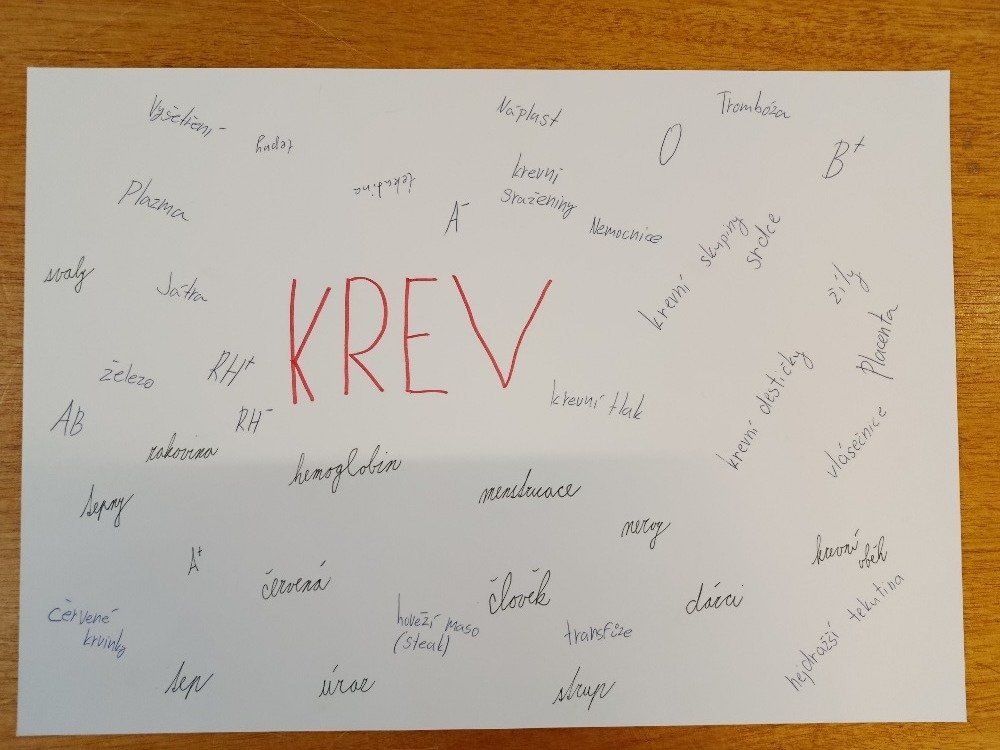 Vyšetření
Náplast
Trombóza
tepny
O
B+
krevní
sraženiny
tekutina
Plazma
A-
Nemocnice
krevní skupiny
srdce
svaly
Játra
KREV
žíly
Placenta
železo
RH+
krevní destičky
krevní tlak
AB
RH-
vlásečnice
rakovina
hemoglobin
menstruace
tepny
nervy
A+
krevní
oběh
červená
člověk
dárci
červené
krvinky
hovězí maso
(steak)
transfúze
nejdražší tekutina
tep
úraz
strup